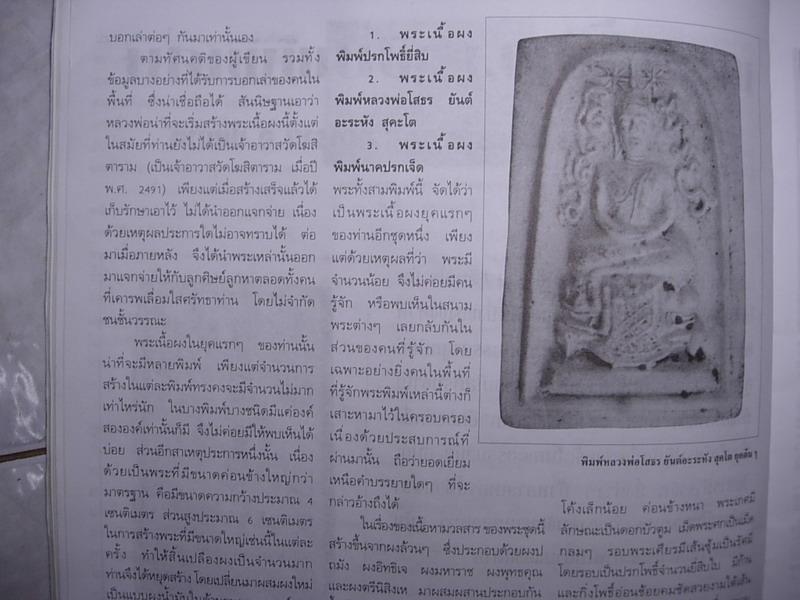 บอกเล่าต่อๆ กันมาเท่านั้นเอง
ตามทัศนคติของผู้เขียน รวมทั้ง
ข้อมูลบางอย่างที่ได้รับการบอกเล่าของคนใน
พื้นที่ ซึ่งน่าเชื่อถือได้ สันนิษฐานเอาว่า
หลวงพ่อน่าที่จะเริ่มสร้างพระเนื้อผงนี้ตั้งแต่
ในสมัยที่ท่านยังไม่ได้เป็นเจ้าอาวาสวัดโฆสิ
ตาราม (เป็นเจ้าอาวาสวัดโฆสิตาราม เมื่อปี
พ.ศ. 2491) เพียงแต่เมื่อสร้างเสร็จแล้วได้
เก็บรักษาเอาไว้ ไม่ได้นำออกแจกจ่าย เนื่อง
ด้วยเหตุผลประการใดไม่อาจทราบได้ ต่อ
มาเมื่อภายหลัง จึงได้นำพระเหล่านั้นออก
มาแจกจ่ายให้กับลูกศิษย์ลูกหาตลอดทั้งคน
ที่เคารพเลื่อมใสศรัทธาท่าน โดยไม่จำกัด
ชนชั้นวรรณะ
พระเนื้อผงในยุคแรกๆ ของท่านนั้น
น่าที่จะมีหลายพิมพ์ เพียงแต่จำนวนการ
สร้างในแต่ละพิมพ์ทรงคงจะมีจำนวนไม่มาก
เท่าไหร่นัก ในบางพิมพ์บางชนิดมีแค่องค์
สององค์เท่านั้นก็มี จึงไม่ค่อยมีให้พบเห็นได้
บ่อย ส่วนอีกสาเหตุประการหนึ่งนั้น เนื่อง
ด้วยเป็นพระที่มีขนาดค่อนข้างใหญ่กว่า
มาตรฐาน คือมีขนาดความกว้างประมาณ 4
เซนติเมตร ส่วนสูงประมาณ 6 เซนติเมตร
ในการสร้างพระที่มีขนาดใหญ่เช่นนี้ในแต่ละ
ครั้ง ทำให้สิ้นเปลืองผงเป็นจำนวนมาก
ท่านจึงได้หยุดสร้าง โดยเปลี่ยนมาผสมผงใหม่
เป็นแบบผงน้ำมัน
1. พระเนื้อผง
พิมพ์ปรกโพธิ์ยี่สิบ
2. พระเนื้อผง
พิมพ์หลวงพ่อโสธร ยันต์
อะระหัง สุคะโต
3. พระเนื้อผง
พิมพ์นาคปรกเจ็ด
พระทั้งสามพิมพ์นี้ จัดได้ว่า
เป็นพระเนื้อผงยุคแรกๆ
ของท่านอีกชุดหนึ่ง เพียง
แต่ด้วยเหตุผลที่ว่า พระมี
จำนวนน้อย จึงไม่ค่อยมีคน
รู้จัก หรือพบเห็นในสนาม
พระต่างๆ เลยกลับกันใน
ส่วนของคนที่รู้จัก โดย
เฉพาะอย่างยิ่งคนในพื้นที่
ที่รู้จักพระพิมพ์เหล่านี้ต่างก็
เสาะหามาไว้ในครอบครอง
เนื่องด้วยประสบการณ์ที่
ผ่านมานั้น ถือว่ายอดเยี่ยม
เหนือคำบรรยายใดๆ ที่จะ
กล่าวอ้างถึงได้
ในเรื่องของเนื้อหามวลสาร ของพระชุดนี้
สร้างขึ้นจากผงล้วนๆ ซึ่งประกอบด้วยผงป
ถมัง ผงอิทธิเจ ผงมหาราช ผงพุทธคุณ
และผงตรีนิสิงเห มาผสมผสานประกอบกัน
พิมพ์หลวงพ่อโสธร ยันต์อะระหัง สุคโต ยุคต้น ๆ
โค้งเล็กน้อย ค่อนข้างหนา พระเกศมี
ลักษณะเป็นดอกบัวตูม เม็ดพระศกเป็นเม็ด
กลมๆ รอบพระเศียรมีเส้นซุ้มเป็นรัศมี
โดยรอบเป็นปรกโพธิ์จำนวนยี่สิบใบ มีก้าน
และกิ่งโพธิ์อ่อนช้อยคมชัดสวยงามใต้เส้น